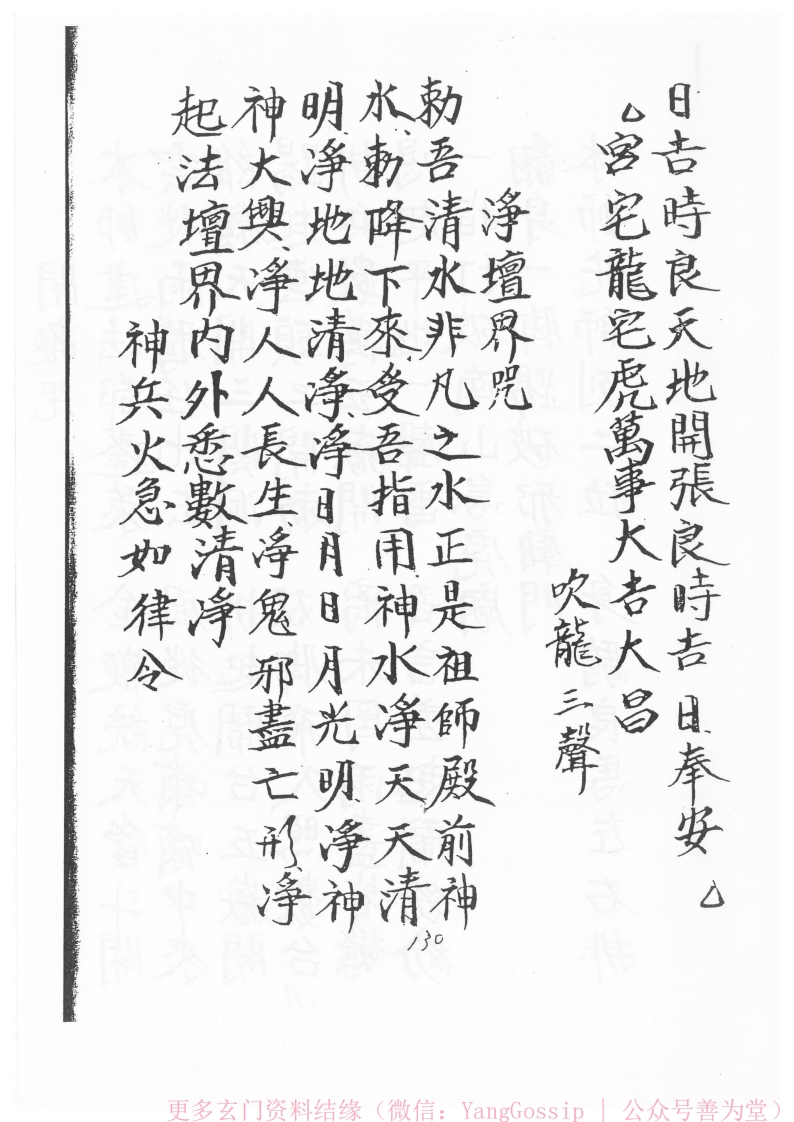 日吉時良天地開張良時吉日奉安△
△宮宅龍宅虎萬事大吉大昌
吹龍三聲
淨壇界咒
勅吾清水非凡之水正是祖師殿前神
水勅降下來受吾指用神水淨天天清
明淨地地清淨淨日月日月光明淨神
神大興淨人人長生淨鬼邪盡亡形淨
起法壇界內外悉數清淨
神兵火急如律令
130
更多玄门资料结缘（微信：YangGossip | 公众号善为堂）